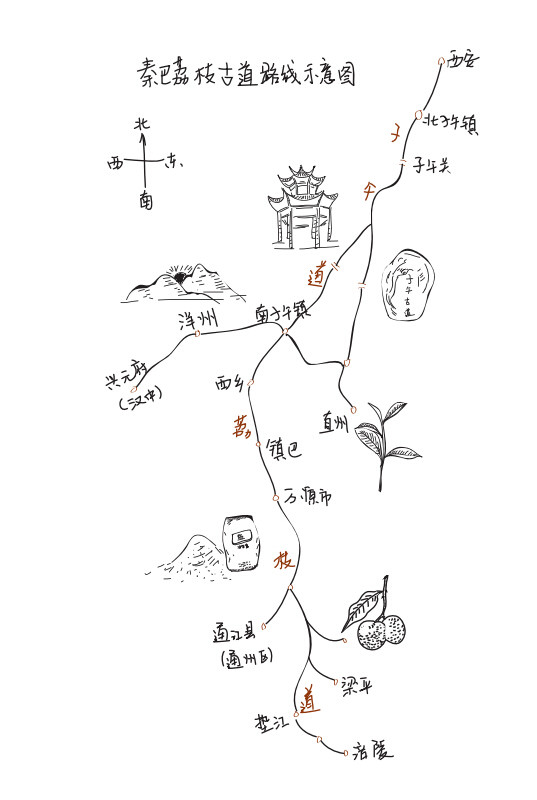 秦巴荔枝古道路线示意图
西安
北
北子午镇
子
西
东
子午关
午
南
道
子午古道
洋州
南子午镇
兴元府
(汉中)
西乡
直州
荔
镇巴
万源市
枝
通江县
(通州区)
梁平
道
垫江
涪陵